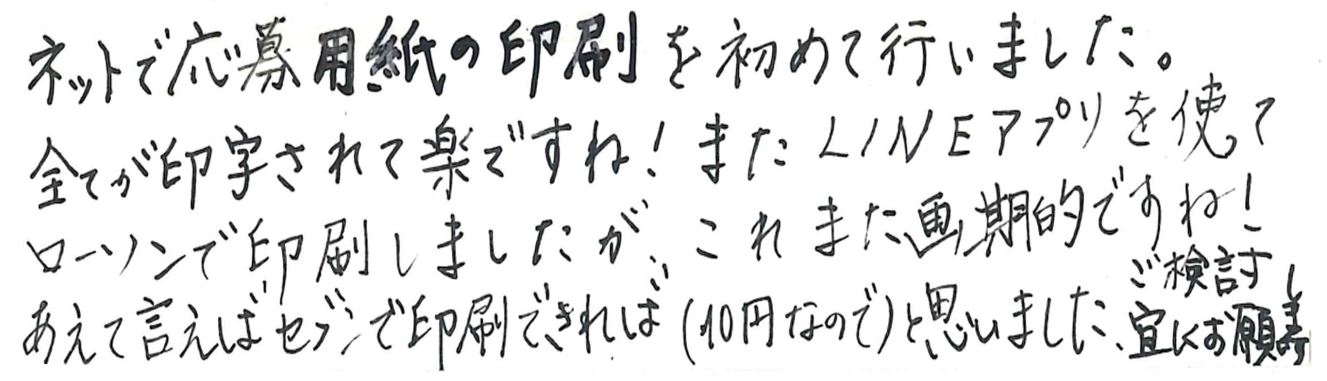 ネットで応募用紙の印刷を初めて行いました。
全てが印字されて楽ですね!またLINEアプリを使って
ローソンで印刷しましたが、これまた画期的ですね!
あえて言えばセブンで印刷できれば(10円なので)と思いました、
ご検討
宜にお願します